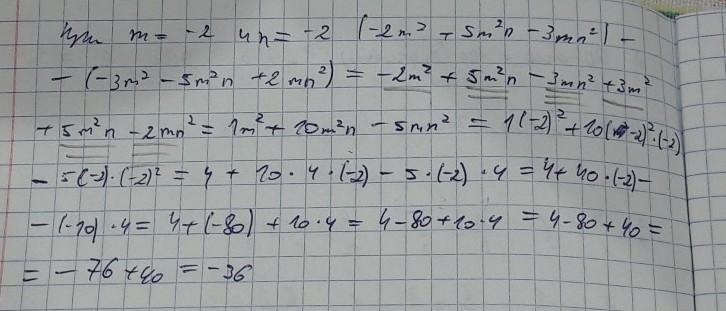 При m = -2 и n = -2 (-2m² + 5m²n - 3mn²) -
- (-3m² - 5m²n + 2mn²) = -2m² + 5m²n - 3mn² + 3m²
+ 5m²n - 2mn² = 1m² + 10m²n - 5mn² = 1(-2)² + 10(-2)²·(-2)
- 5(-2)·(-2)² = 4 + 10·4·(-2) - 5·(-2)·4 = 4 + 40·(-2) -
- (-10)·4 = 4 + (-80) + 10·4 = 4 - 80 + 10·4 = 4 - 80 + 40 =
= - 76 + 40 = -36